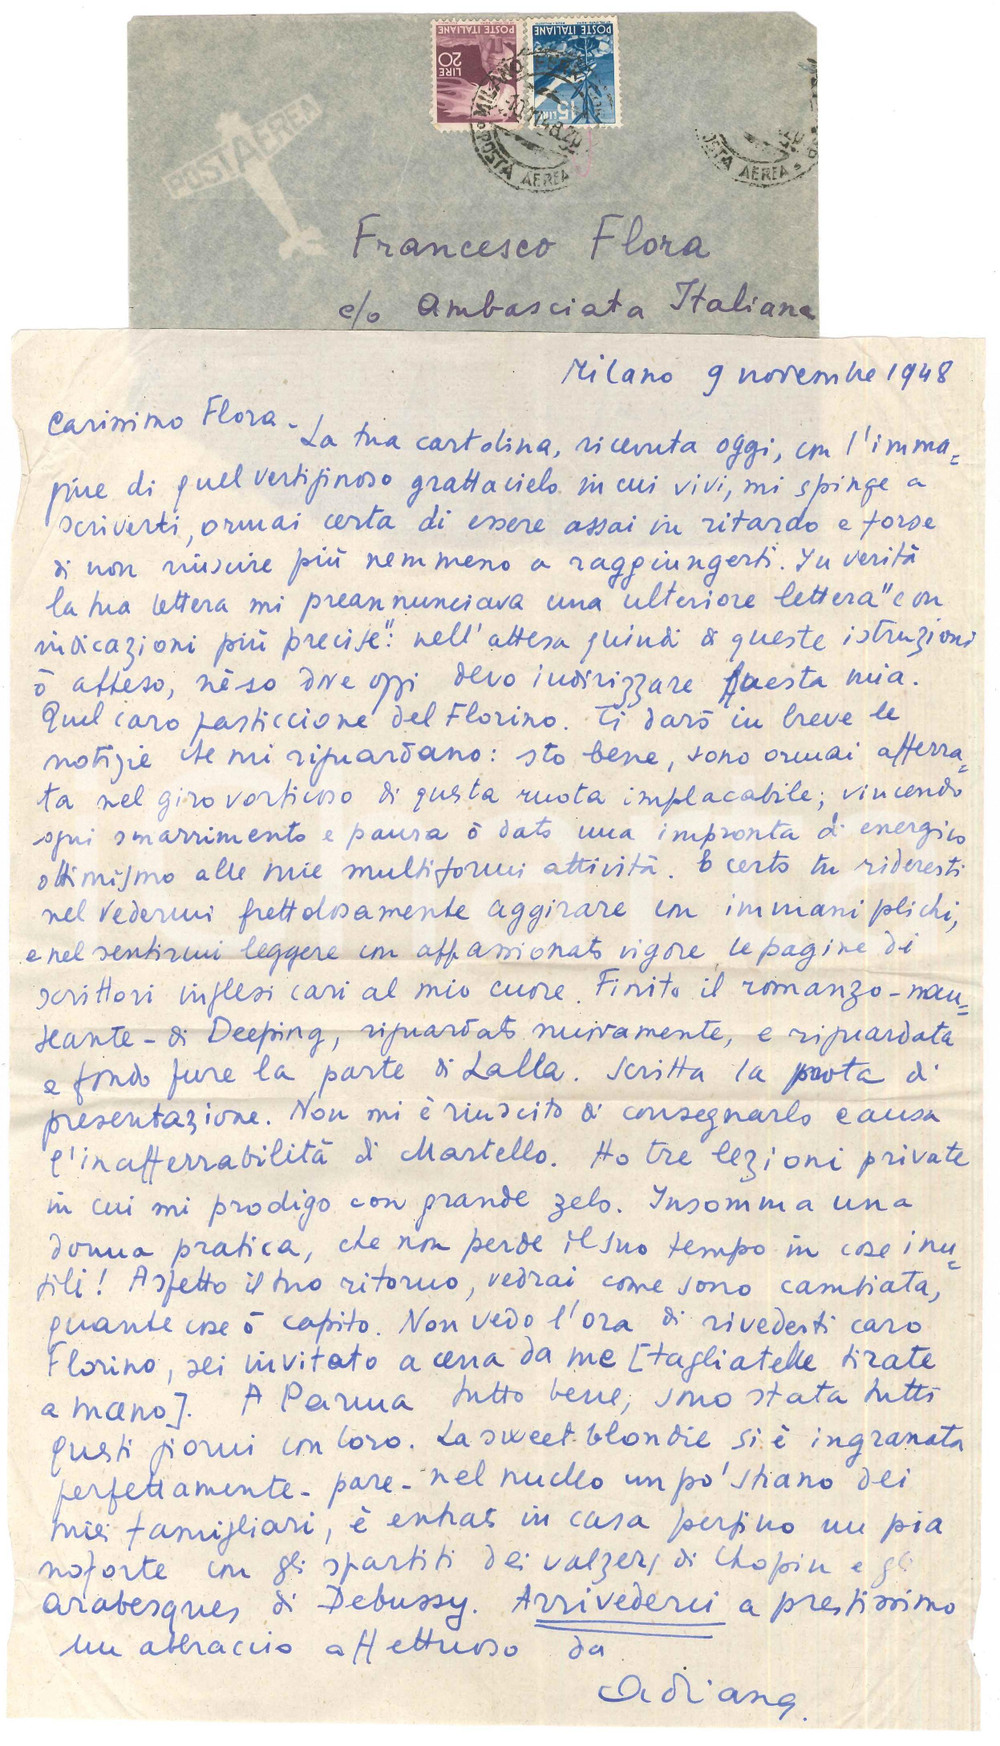 POSTE ITALIANE
LIRE 20
POSTE ITALIANE
15 LIRE
MILANO
10.11.48.20
POSTA AEREA
POSTA AEREA
POSTA AEREA
Francesco Flora
c/o Ambasciata Italiana
Milano 9 novembre 1948
Carissimo Flora - La tua cartolina, ricevuta oggi, con l'imma=
gine di quel vertiginoso grattacielo in cui vivi, mi spinge a
scriverti, ormai certa di essere assai in ritardo e forse
di non riuscire più nemmeno a raggiungerti. In verità
la tua lettera mi preannunciava una ulteriore lettera "con
indicazioni più precise": nell'attesa quindi di queste istruzioni
ò atteso, nè so dove oggi devo indirizzare questa mia.
Quel caro pasticcione del Florino. Ti darò in breve le
notizie che mi riguardano: sto bene, sono ormai afferra=
ta nel giro vorticoso di questa ruota implacabile; vincendo
ogni smarrimento e paura ò dato una impronta di energico
ottimismo alle mie multiformi attività. E certo tu rideresti
nel vedermi frettolosamente aggirare con immani plichi,
e nel sentirmi leggere con appassionato vigore le pagine di
scrittori inglesi cari al mio cuore. Finito il romanzo - nau=
seante - di Deeping, riguardato nuovamente, e riguardata
a fondo pure la parte di Lalla. Scritta la nota di
presentazione. Non mi è riuscito di consegnarlo causa
l'inafferrabilità di Martello. Ho tre lezioni private
in cui mi prodigo con grande zelo. Insomma una
donna pratica, che non perde il suo tempo in cose inu=
tili! Aspetto il tuo ritorno, vedrai come sono cambiata,
quante cose ò capito. Non vedo l'ora di rivederti caro
Florino, sei invitato a cena da me [tagliatelle tirate
a mano]. A Parma tutto bene, sono stata tutti
questi giorni con loro. La sweet-blondie si è ingranata
perfettamente - pare - nel nucleo un po' strano dei
miei famigliari, è entrato in casa perfino un pia
noforte con gli spartiti dei valzers di Chopin e gli
arabesques di Debussy. Arrivederci a prestissimo
un abbraccio affettuoso da
Adriana.